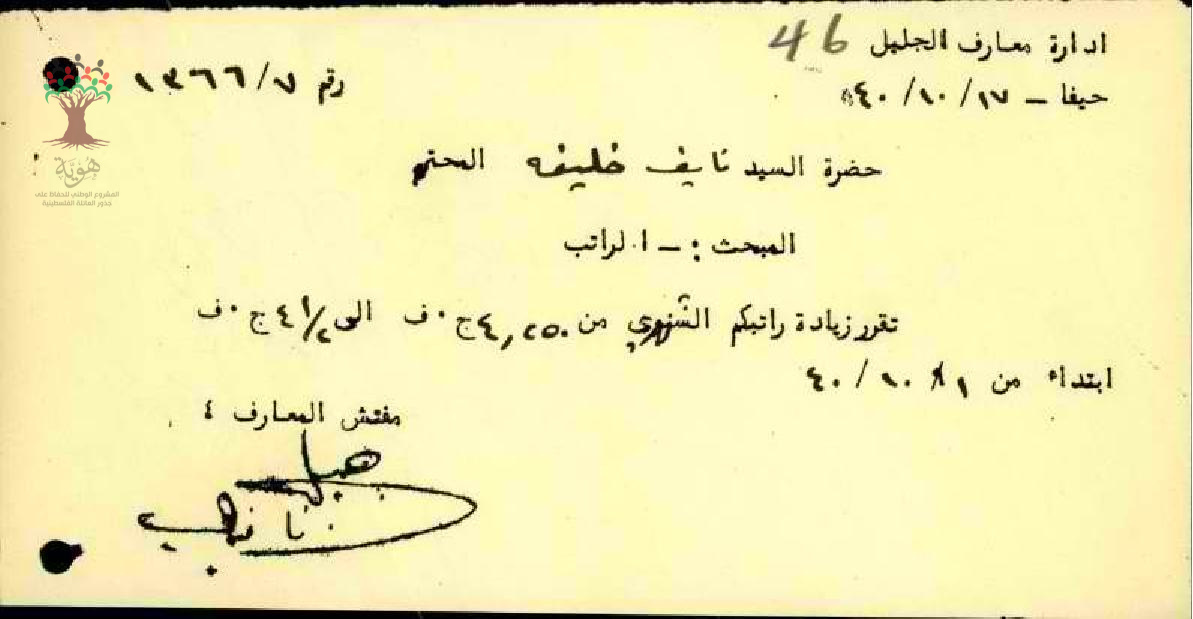 ادارة معارف الجليل 46
حيفا – ١٧/ ١٠/ ٤٠
رقم ٧/ ١٣٦٦
حضرة السيد نايف خليفه المحترم
المبحث : – الراتب
تقرر زيادة راتبكم الشهري من ٤,٢٥٠ ج٠ف الى ٤١/٢ ج٠ف
ابتداء من ١/ ١٠/ ٤٠
مفتش المعارف
هُوِيَّة
المشروع الوطني للحفاظ على
جذور العائلة الفلسطينية